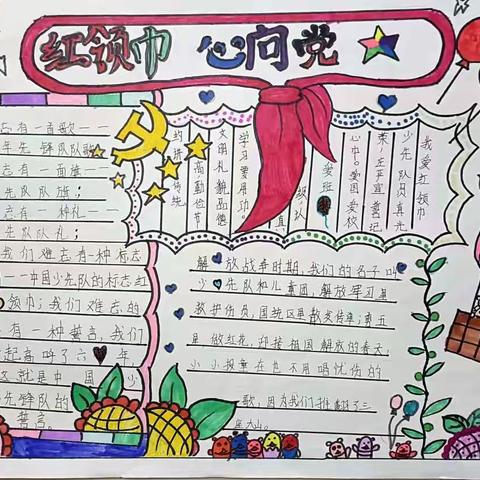 红领巾 心向党
志有一首歌——
年先锋队队歌
志有一面旗——
先队队旗；
志有一种礼——
先队队礼；
我们难忘有一种标志
——中国少先队的标志红
领巾；我们难忘的
有一种誓言，我们
起高呼了六 年
这就是中国少
先锋队的
誓言。
我爱红领巾
少先队员真光
荣
心中。爱国爱校
爱班
学习要用功。
文明礼貌品德
高勤俭节
约
传统
解放战争时期，我们的名字叫
少先队和儿童团，解放军习量
救护伤员，围统这里散发传单；第五
里做红花，迎接祖国解放的春天，
小小报童在也不用唱忧伤的
歌，因为我们推翻了三
座大山。